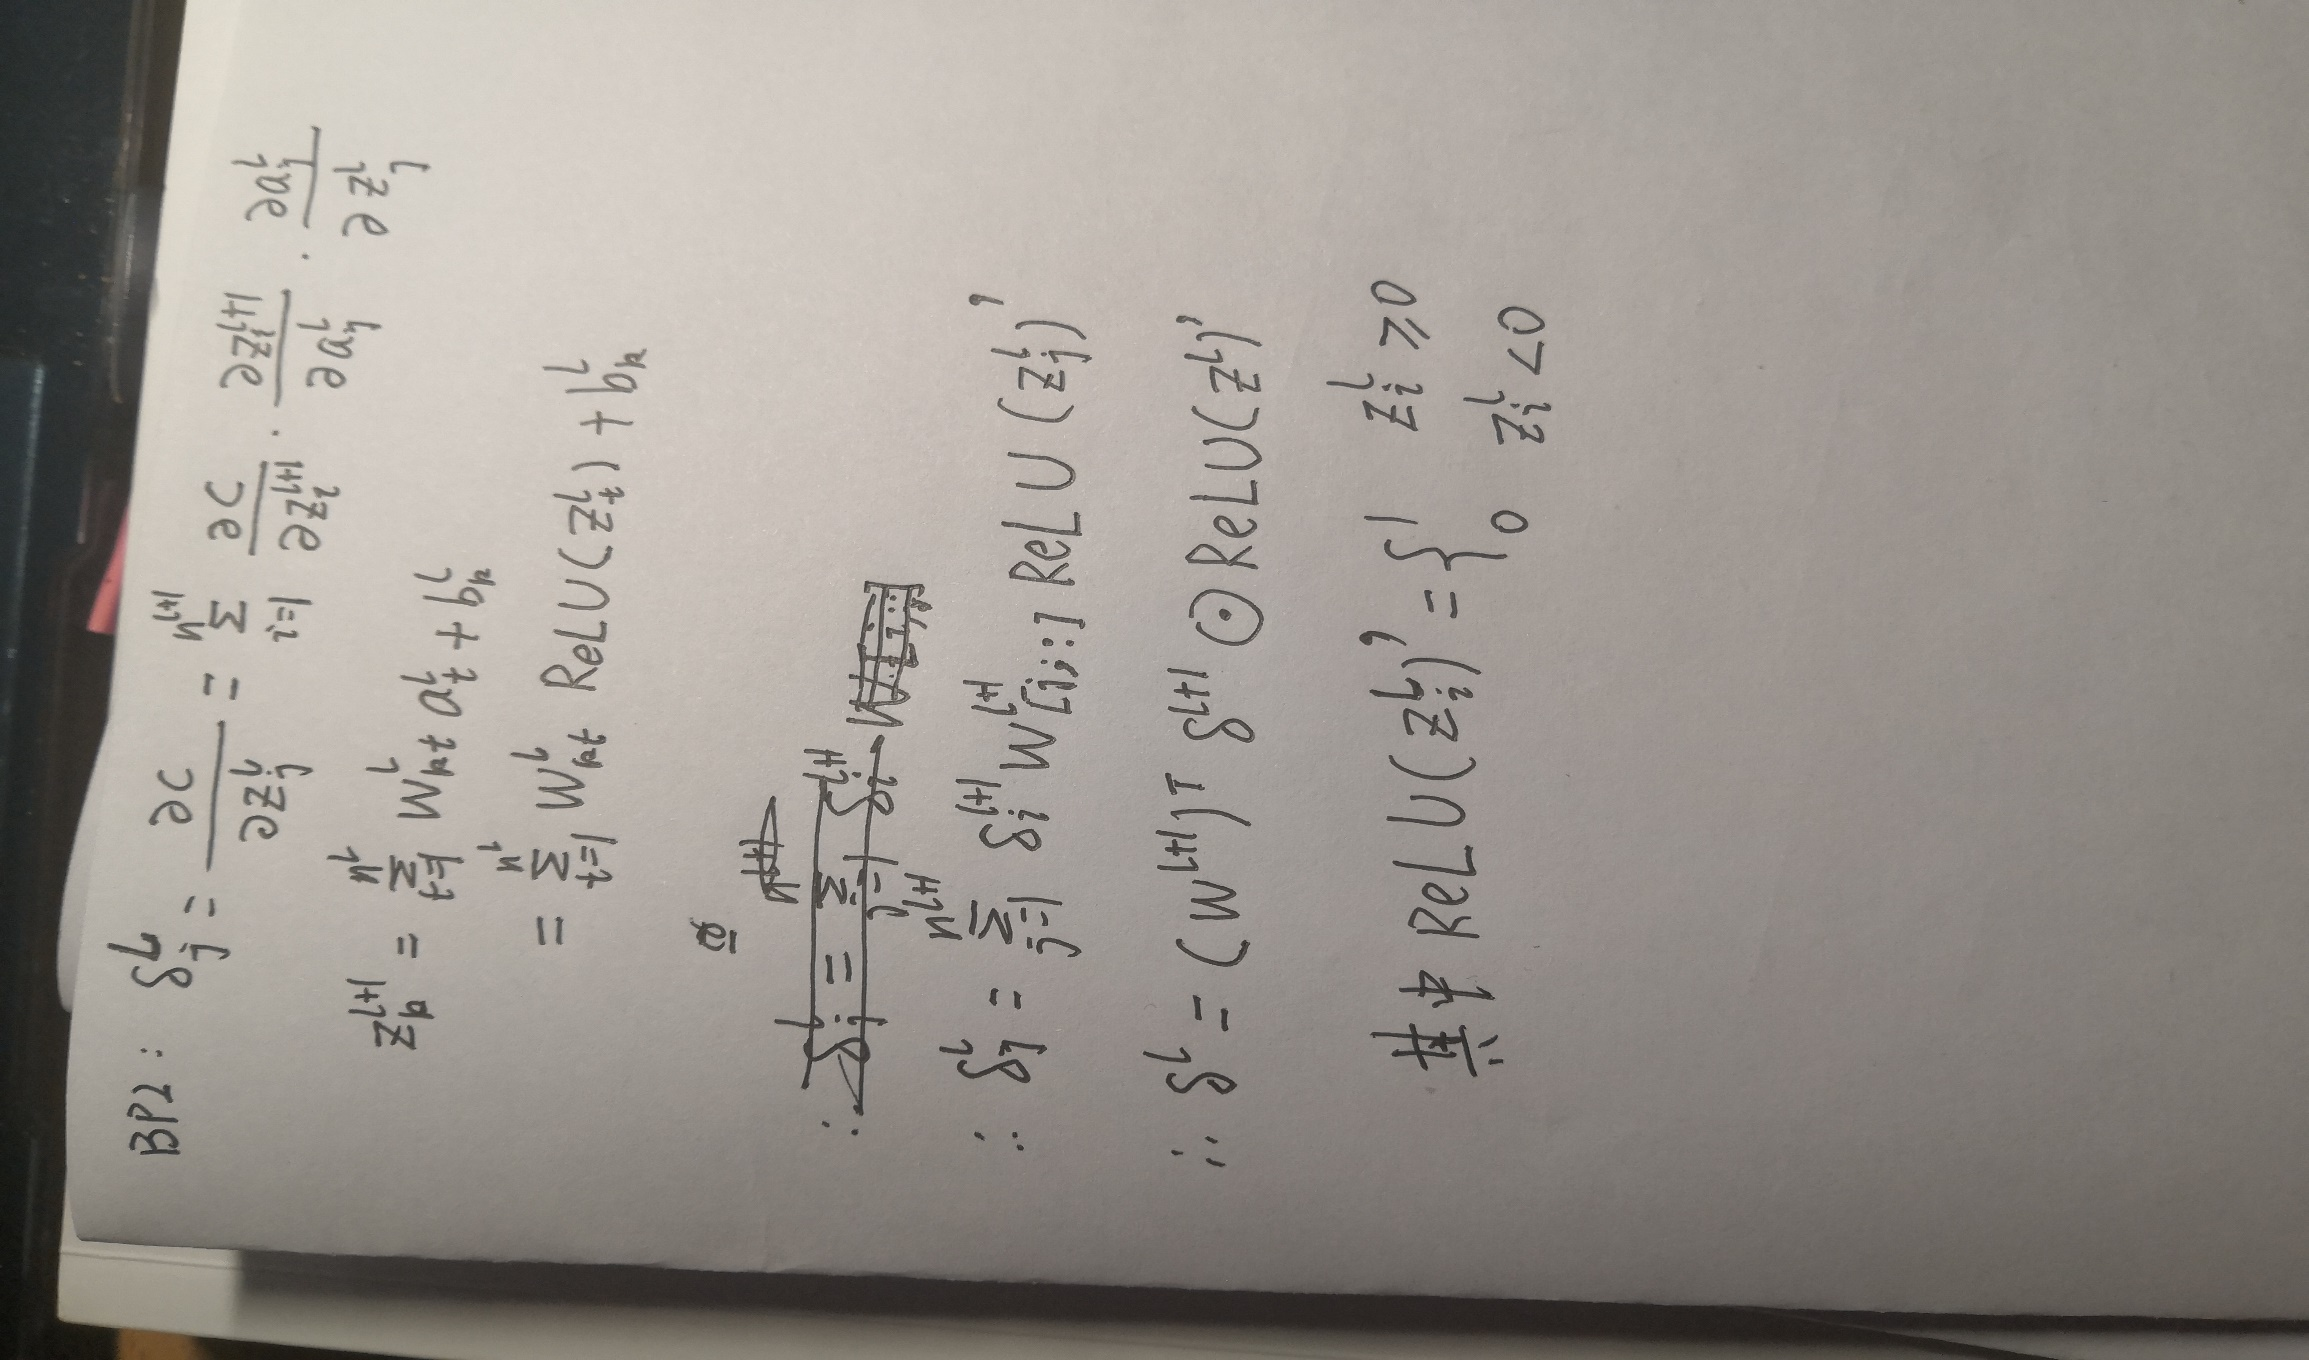 BP2: δ_j^l = ∂C/∂z_j^l = Σ_{i=1}^{n^{l+1}} ∂C/∂z_i^{l+1} · ∂z_i^{l+1}/∂a_j^l · ∂a_j^l/∂z_j^l
z_k^{l+1} = Σ_{t=1}^{n^l} W_{kt}^l a_t^l + b_k^l
= Σ_{t=1}^{n^l} W_{kt}^l ReLU(z_t^l) + b_k^l
∴ δ_j^l = Σ_{j=1}^{n^{l+1}} δ_i^{l+1} W^{l+1}[i,:] ReLU(z_j^l)'
∴ δ^l = (W^{l+1})^T δ^{l+1} ⊙ ReLU(z^l)'
其中 ReLU(z_i^l)' = { 1 z_i^l ≥ 0
0 z_i^l < 0